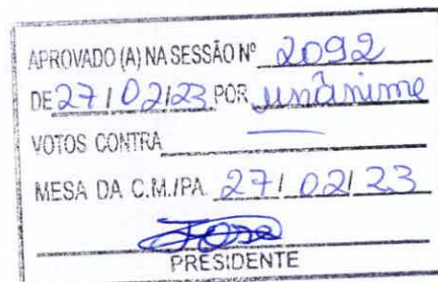 APROVADO (A) NA SESSÃO Nº 2092
DE 27 / 02/23 POR unânime
VOTOS CONTRA
MESA DA C.M./PA. 27/ 02/ 23
PRESIDENTE